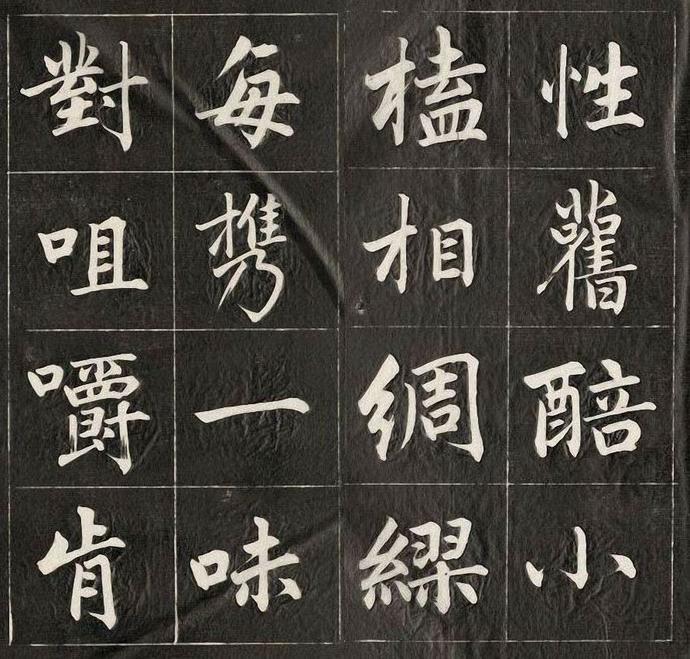 性舊醅小
榼相綢繆
每携一味
對咀嚼肯